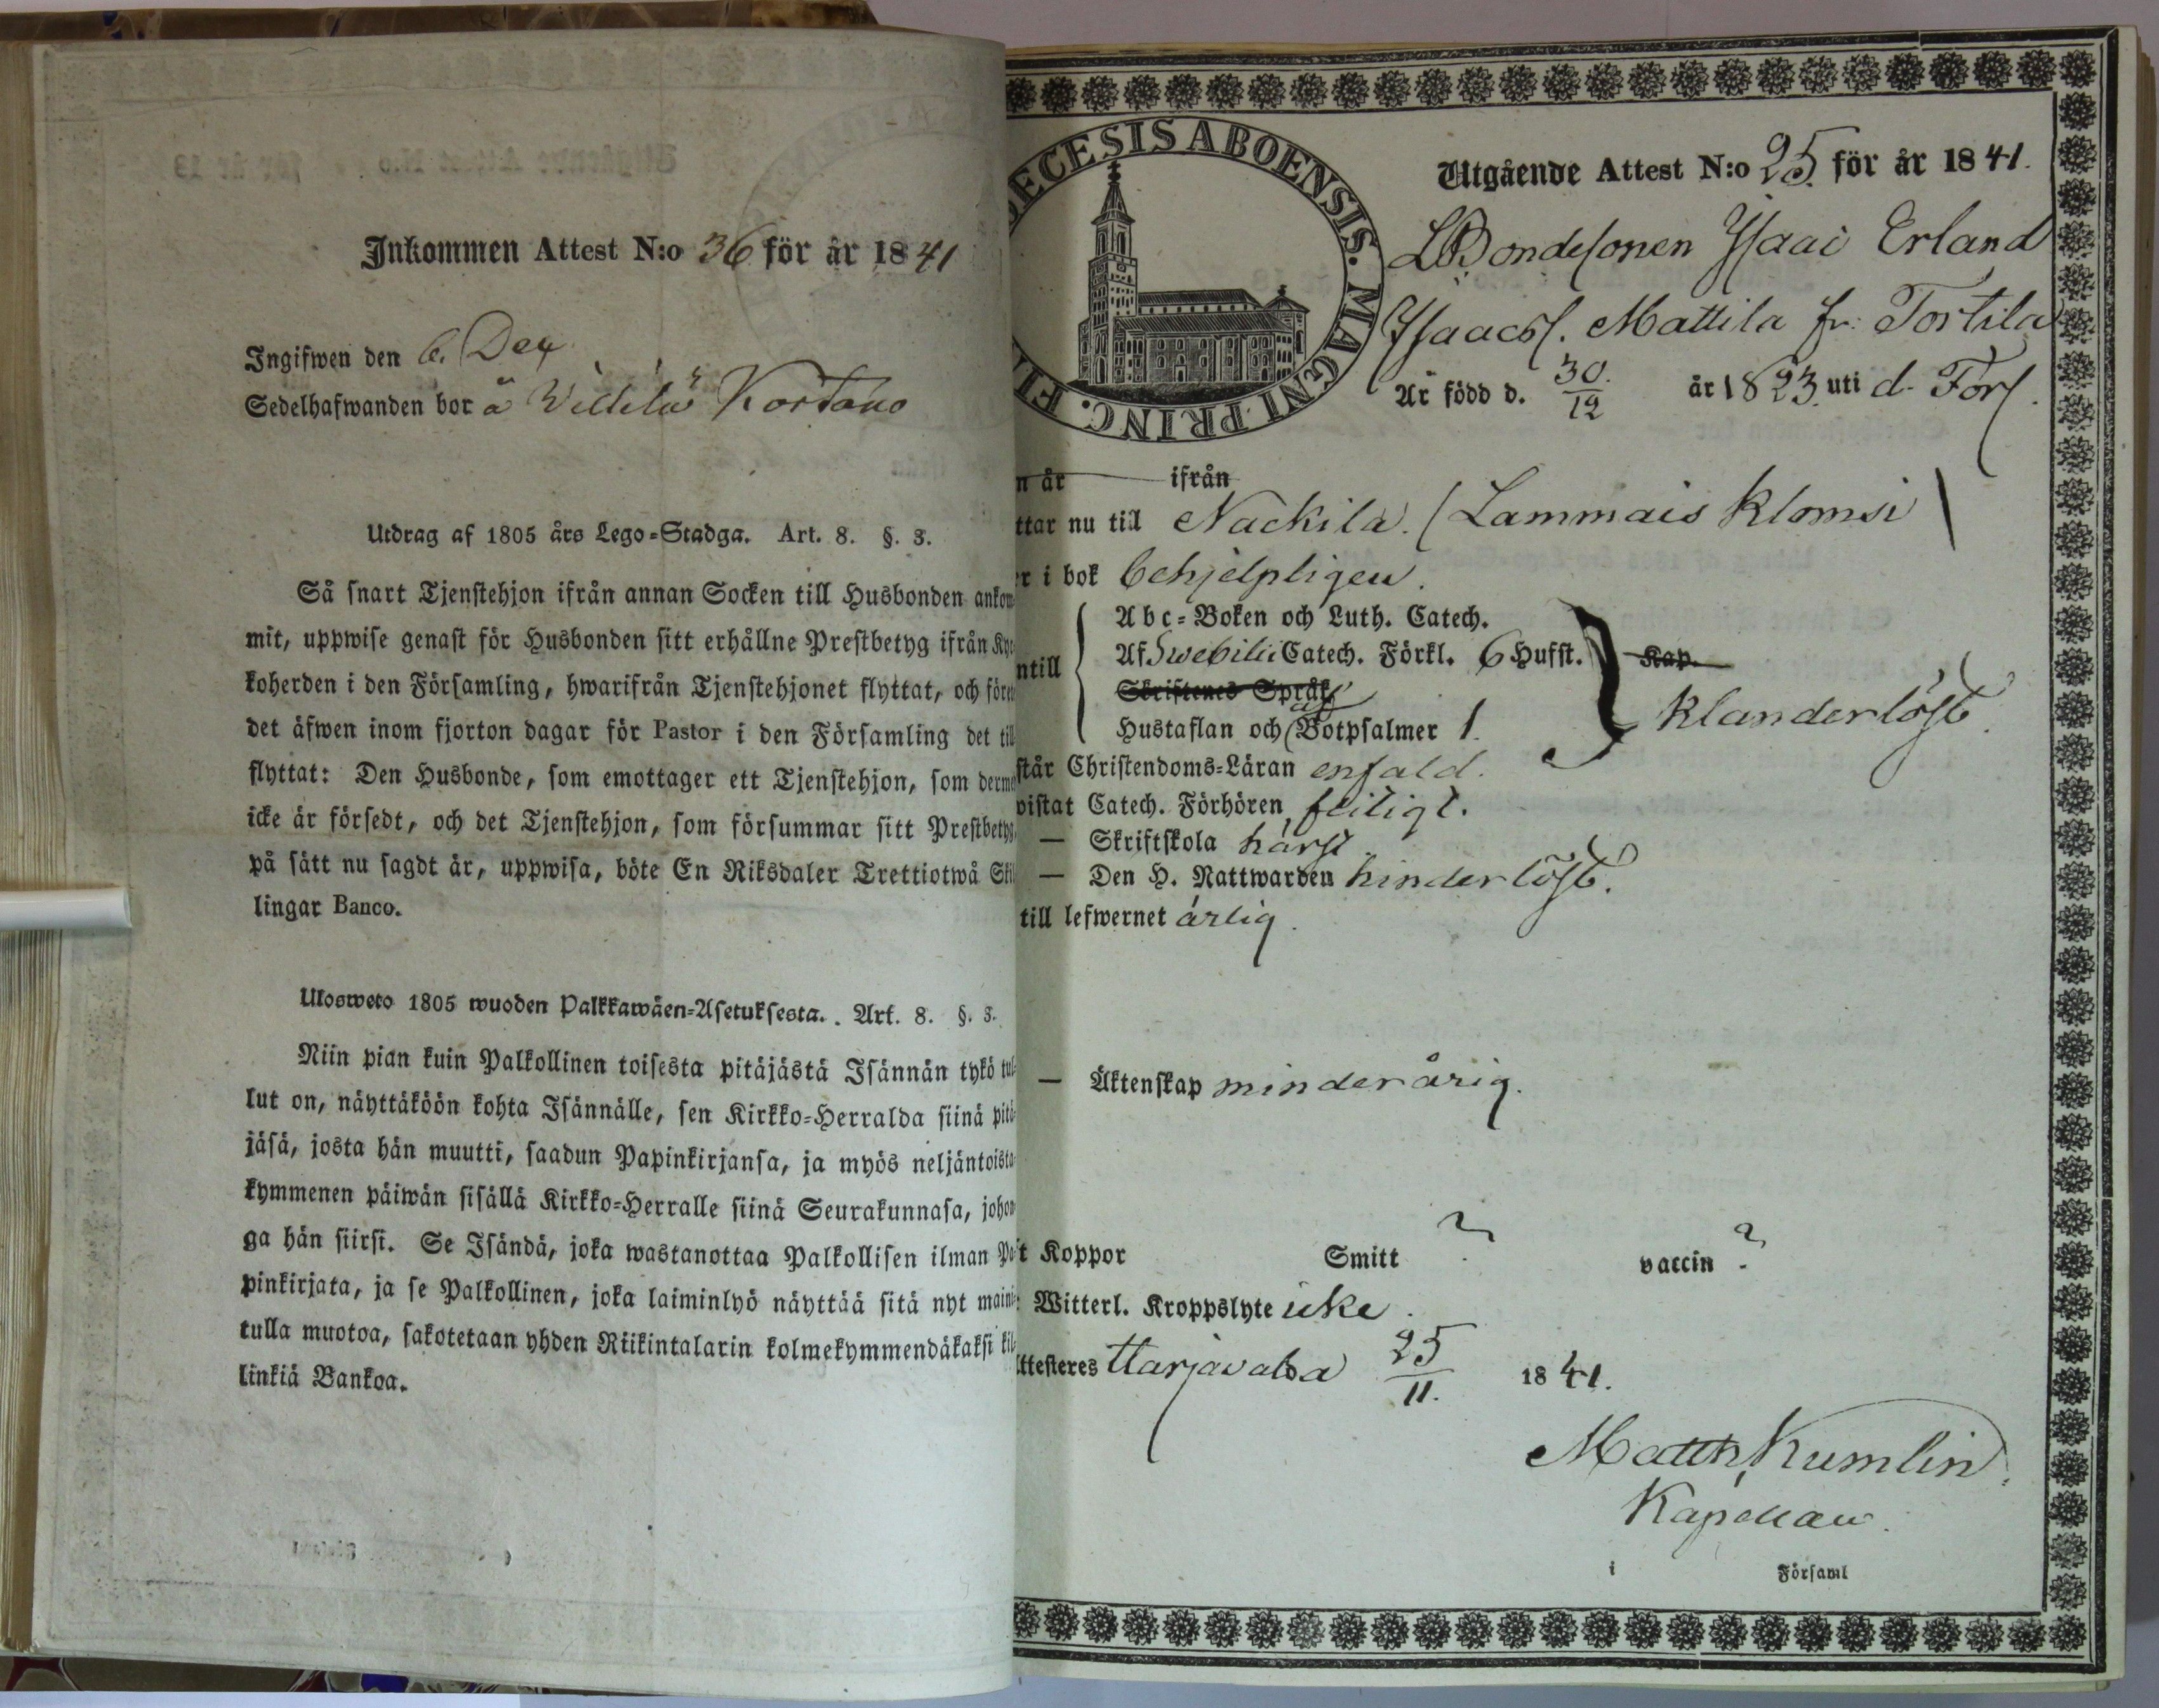 Inkommen Attest N:o 36 för år 1841
Ingifwen den 6. Dec
Sedelhafwanden bor å Kortano
Utdrag af 1805 års Lego-Stadga. Art. 8. §. 3.
Så snart Tjenstehjon ifrån annan Socken till Husbonden ankom
mit, uppwise genast för Husbonden sitt erhållne Prestbetyg ifrån Kyr
koherden i den Församling, hwarifrån Tjenstehjonet flyttat, och före
det äfwen inom fjorton dagar för Pastor i den Församling det till
flyttat: Den Husbonde, som emottager ett Tjenstehjon, som derme
icke är försedt, och det Tjenstehjon, som försummar sitt Prestbetyg
på sätt nu sagdt är, uppwisa, böte En Riksdaler Trettiotwå Skil
lingar Banco.
Ulosweto 1805 wuoden Palkkawäen-Asetuksesta. Art. 8. §. 3.
Niin pian kuin Palkollinen toisesta pitäjästä Isännän tykö tul-
lut on, näyttäköön kohta Isännälle, sen Kirkko-Herralda siinä pitä-
jäsä, josta hän muutti, saadun Papinkirjansa, ja myös neljäntoista-
kymmenen päiwän sisällä Kirkko-Herralle siinä Seurakunnasa, johon-
ga hän siirsi. Se Isändä, joka wastanottaa Palkollisen ilman Pa-
pinkirjata, ja se Palkollinen, joka laiminlyö näyttää sitä nyt maini-
tulla muotoa, sakotetaan yhden Riikintalarin kolmekymmendäkaksi kil-
linkiä Bankoa.
ECESIS ABOENSIS. MAGNI PRINC. FI
Utgående Attest N:o 25. för år 1841.
Bondesonen Isaac Erland
Isaacss. Mattila fr. Tortila
Är född d. 30/12 år 1823. uti d. Förs.
n år ifrån
ttar nu till Nackila. (Lammais Klomsi)
r i bok behjelpligen.
ntill
Abc-Boken och Luth. Catech.
Af Swebilii Catech. Förkl. 6 Hufst. Kap.
Skriftenes Språk
Hustaflan och af Botpsalmer 1.
klanderlöst
står Christendoms-Läran enfald.
vistat Catech. Förhören flitigt.
— Skriftskola härst.
— Den H. Nattwarden hinderlöst.
till lefwernet ärlig.
— Äktenskap minderårig.
t Koppor Smitt ? vaccin ?
: Witterl. Kroppslyte icke.
ttesteres Harjavalda 25/11. 1841.
Matth. Kumlin.
Kapellan.
i Församl